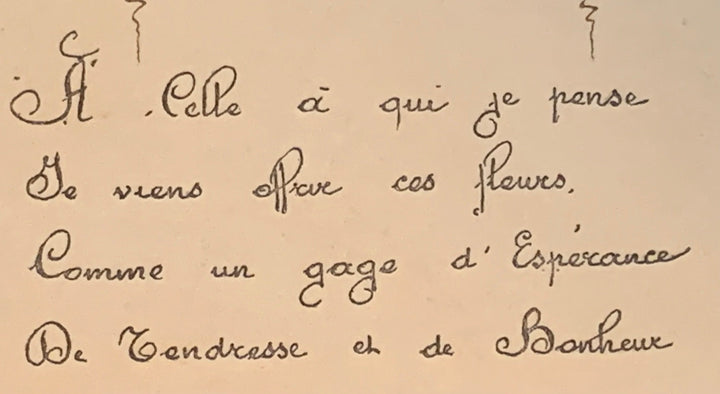 À Celle à qui je pense
Je viens offrir ces fleurs.
Comme un gage d'Espérance
De Tendresse et de Bonheur